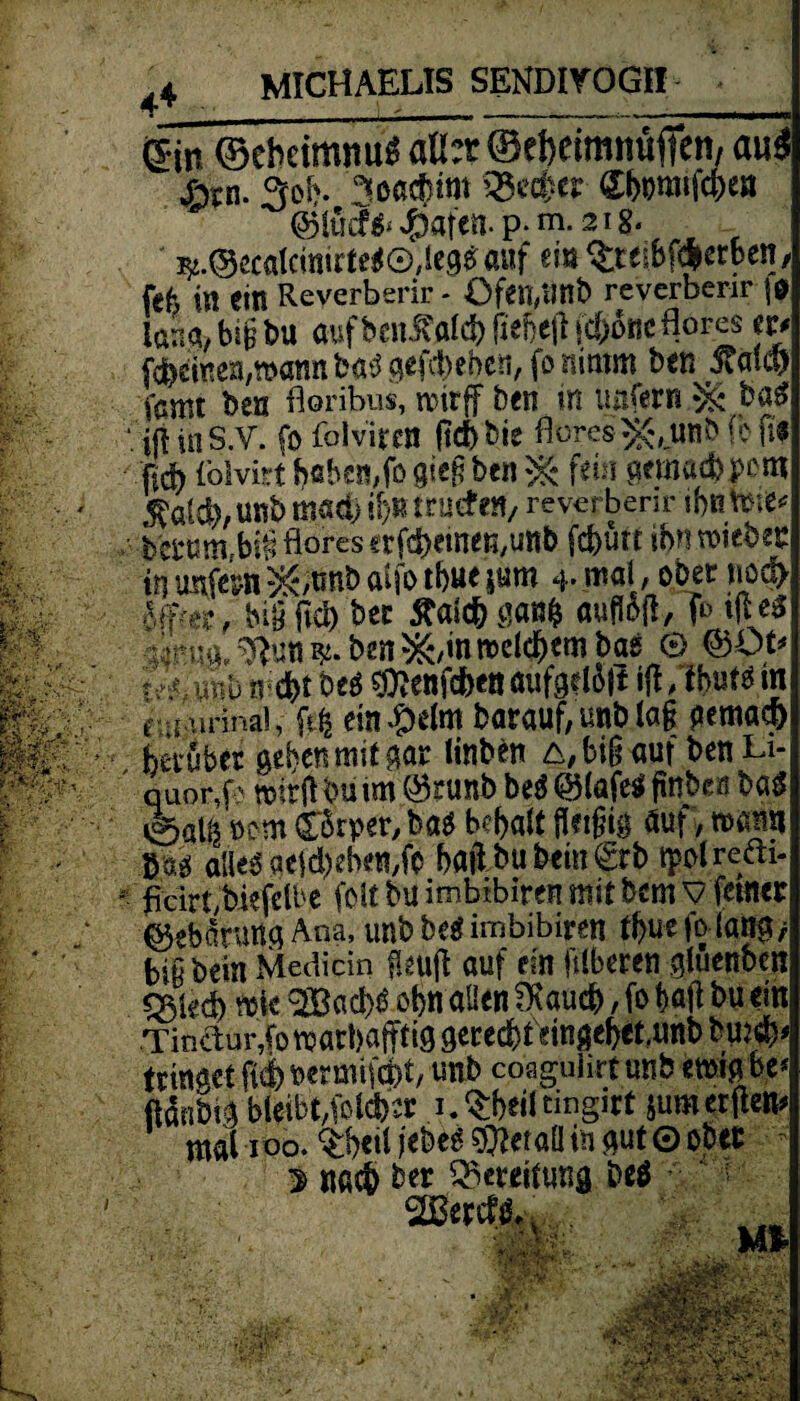 44 MICHAELIS SENDIVOGII
Ein Geheimnuß aller Geheimnüssen, aus
Hrn. Joh. Joachim Becher Chymischen
Glücks-Hafen. p. m. 218.
℞. Gecalcinirtes☉, legs auf ein Treibscherben,
setz in ein Reverberir - Ofen, und reverberir so
lang, biß du auf den Kalch siehest schöne flores er-
scheinen, wann das geschehen, so nimm den Kalch
samt den floribus, wirff den in unsern ⚹ das
ist in S.V. so solviren sich die flores ⚹, und so sie
sich solvirt haben, so gieß den ⚹ fein gemach vom
Kalch, und mach ihn trucken, reverberir ihn wie-
derum, biß flores erscheinen, und schütt ihn wieder
in unsern ⚹, und also thue zum 4. mal, oder noch
öffter, biß sich der Kalch gantz auflöst, so ist es
genug. Nun ℞. den ⚹, in welchem das ☉ GOt-
tes, und nicht des Menschen aufgelöst ist, thuts in
ein urinal, setz ein Helm darauf, und laß gemach
herüber gehen mit gar linden △, biß auf den Li-
quor, so wirst du im Grund des Glases finden das
Saltz vom Cörper, das behalt fleißig auf, wann
das alles geschehen, so hast du dein Erd wol recti-
ficirt, dieselbe solt du imbibiren mit dem ▽ seiner
Gebärung Ana, und des imbibiren thue so lang,
biß dein Medicin fleust auf ein silberen glüenden
Blech wie Wachs ohn allen Rauch, so hast du ein
Tinctur, so warhafftig gerecht eingehet, und durch-
tringet sich vermischt, und coagulirt und ewig be-
ständig bleibt, solcher 1. Theil tingirt zum ersten-
mal 100. Theil jedes Metall in gut ☉ oder
☽ nach der Bereitung des
Wercks.
MI-